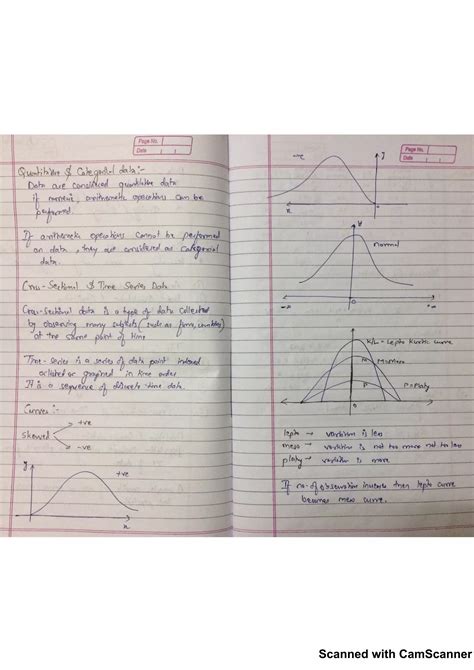 Page No.
Date
Quantitative & Categorical data:-
Data are considered quantitative data
if numeric, arithmetic operations can be
performed.
If arithmetic operations cannot be performed
on data, they are considered as categorical
data.
Cross-Sectional & Time Series Data
Cross-Sectional data is a type of data collected
by observing many subjects (such as firms, countries)
at the same point of time
Time-series is a series of data point indexed
or listed or graphed in time order
It is a sequence of discrete-time data.
Curves :-
skewed
+ve
-ve
y
+ve
x
Page No.
Date
-ve
y
x
o
y
Normal
-∞
0
+∞
K/L - Lepto Kurtic curve
M=Meso
P=Platy
0
lepto → variation is less
meso → variation is not too more not to less
platy → variation is more
If no. of observation increase then lepto curve
becomes meso curve.
Scanned with CamScanner